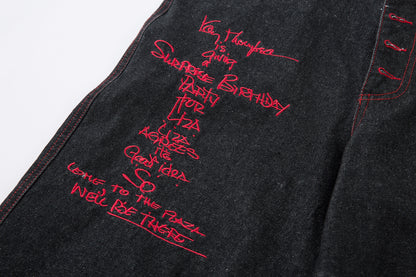 Kay Thompson
is
giving
a
SURPRISE BIRTHDAY
PARTY
FOR
LIZA
LIZA
AGREES
ITS
Good idea
SO
COME TO THE PLAZA
WE'LL BE THERE